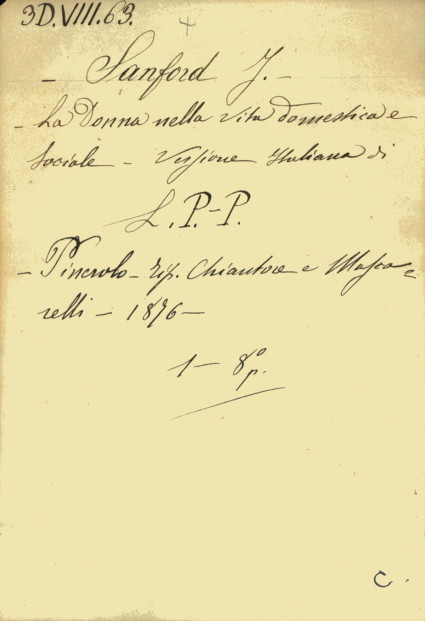 3D.VIII.63.
- Sanford J. -
- La Donna nella vita domestica e
sociale - Versione Italiana di
L.P.-P.
- Pinerolo - Tip. Chiantore e Masca=
relli - 1876 -
1 - 8° p.
C.